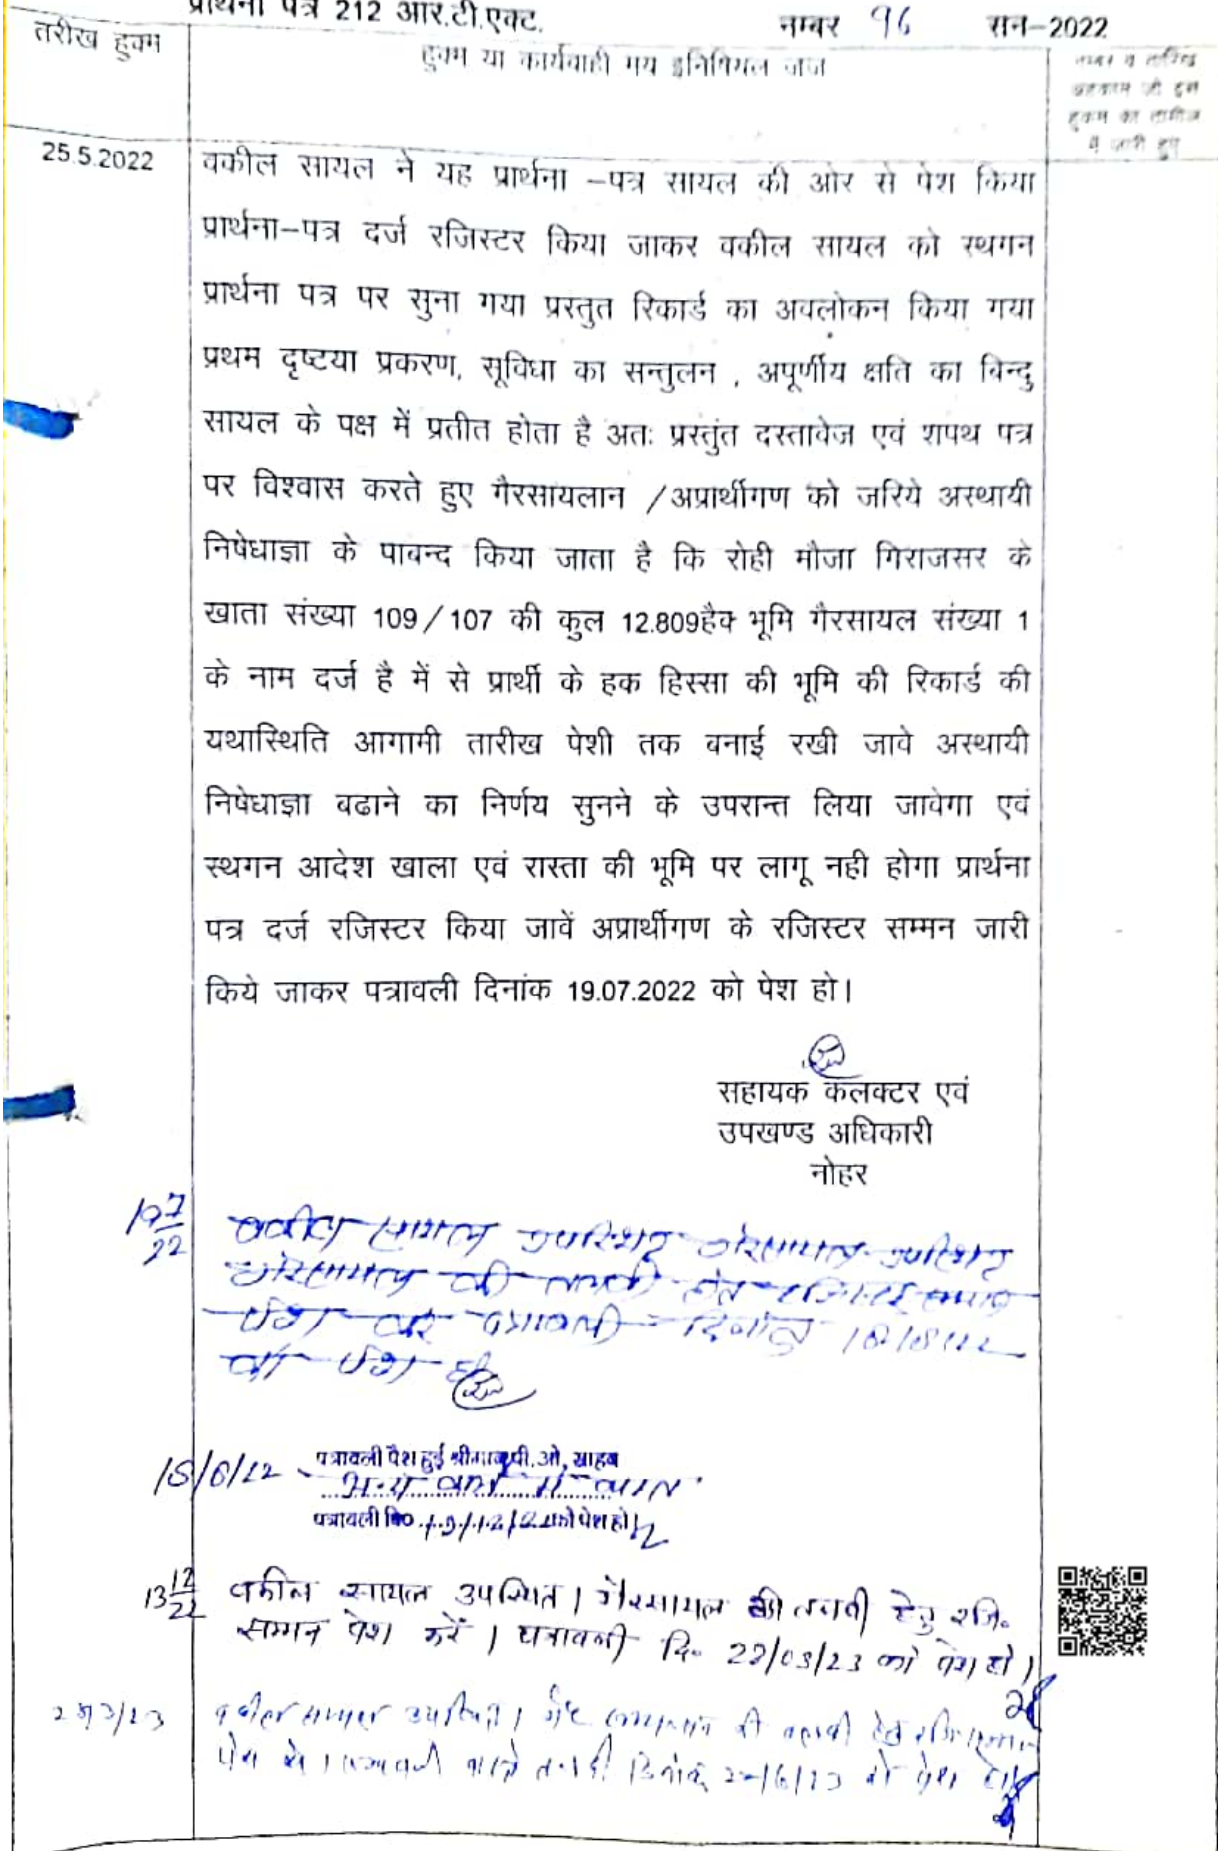 प्रार्थना पत्र 212 आर.टी.एक्ट. नम्बर 96 सन-2022
तरीख हुक्म
हुक्म या कार्यवाही मय इनिषियल जज
नम्बर व तारिख
अहकाम जो इस
हुकम का तामील
में जारी हुए
25.5.2022
वकील सायल ने यह प्रार्थना –पत्र सायल की ओर से पेश किया
प्रार्थना–पत्र दर्ज रजिस्टर किया जाकर वकील सायल को स्थगन
प्रार्थना पत्र पर सुना गया प्रस्तुत रिकार्ड का अवलोकन किया गया
प्रथम दृष्टया प्रकरण, सूविधा का सन्तुलन , अपूर्णीय क्षति का बिन्दु
सायल के पक्ष में प्रतीत होता है अतः प्रस्तुंत दस्तावेज एवं शपथ पत्र
पर विश्वास करते हुए गैरसायलान /अप्रार्थीगण को जरिये अस्थायी
निषेधाज्ञा के पाबन्द किया जाता है कि रोही मौजा गिराजसर के
खाता संख्या 109/107 की कुल 12.809हैक्ट भूमि गैरसायल संख्या 1
के नाम दर्ज है में से प्रार्थी के हक हिस्सा की भूमि की रिकार्ड की
यथास्थिति आगामी तारीख पेशी तक बनाई रखी जावे अस्थायी
निषेधाज्ञा बढाने का निर्णय सुनने के उपरान्त लिया जावेगा एवं
स्थगन आदेश खाला एवं रास्ता की भूमि पर लागू नही होगा प्रार्थना
पत्र दर्ज रजिस्टर किया जावें अप्रार्थीगण के रजिस्टर सम्मन जारी
किये जाकर पत्रावली दिनांक 19.07.2022 को पेश हो।
सहायक कलक्टर एवं
उपखण्ड अधिकारी
नोहर
19 7/22
वकील सायल उपस्थित गैरसायल उपस्थित
गैरसायल की तलबी हेतु रजिस्टर्ड सम्मन
पेश करे पत्रावली दिनांक 18/8/22
को पेश हो
पत्रावली पेश हुई श्रीमान् पी. ओ. साहब
पत्रावली दि० को पेश हो
13 12/22
वकील सायल उपस्थित। गैरसायल की तलबी हेतु रजि॰
सम्मन पेश करें। पत्रावली दि॰ 22/03/23 को पेश हो।
वकील सायल उपस्थित। की तलबी हेतु
पेश करे। पत्रावली वास्ते तलबी दिनांक को पेश हो